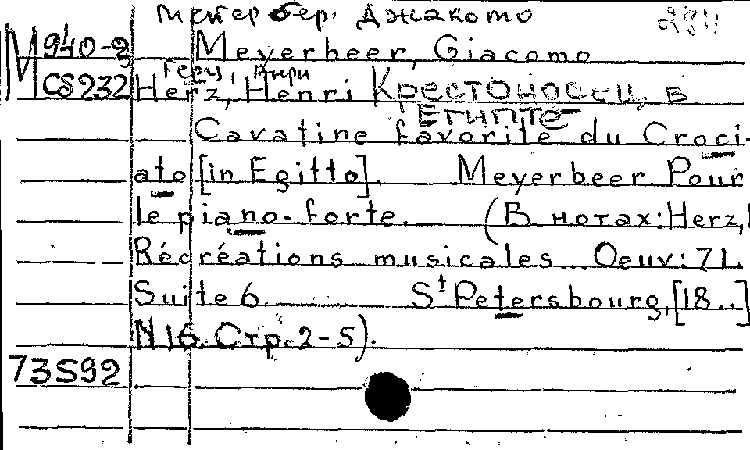 Мейербер. Джакомо
M 940-2 Meyerbeer, Giacomo
Герц, Анри
CS232 Herz, Henri Крестоносец в
Египте
Cavatine favorite du Croci-
ato [in Egitto]. Meyerbeer Pour
le piano-forte. (В нотах: Herz,
Récréations musicales Oeuv: 71.
Suite 6. St Petersbourg, [18..]
N 16. Стр. 2-5).
73S92